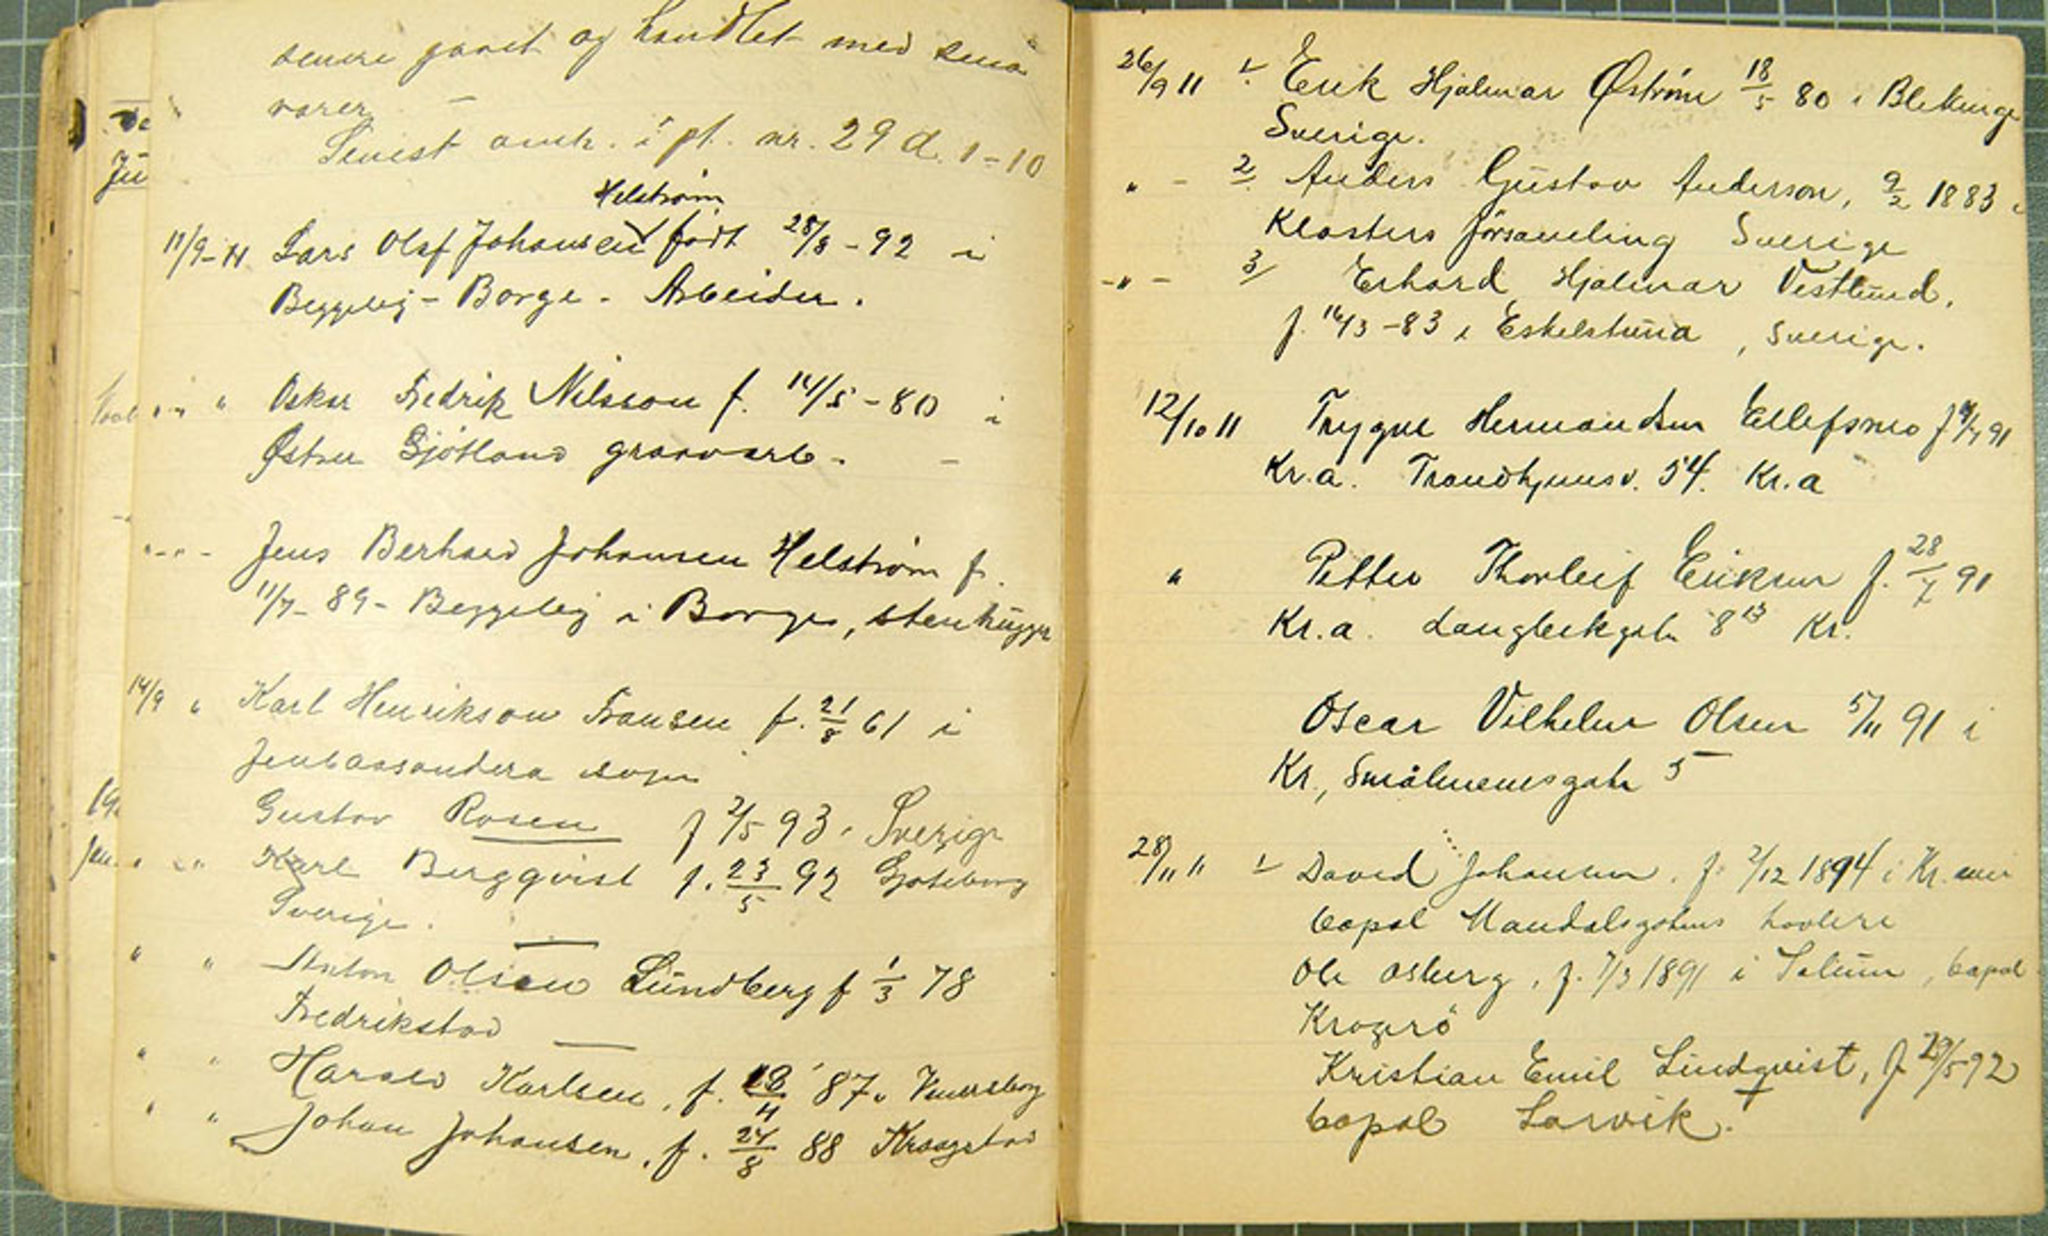 senere gaaet og handlet med smaa
varer. —
Senest anh. i pt. nr. 29 d. 1-10
Helstrøm
11/9-11 Lars Olaf Johansen født 28/8-92 i
Beggeby - Borge - Arbeider.
" - " " Oskar Fredrik Nilsson f. 14/5-80 i
Øster Gjötland graavarb. -
" - " - Jens Berhard Johansen Helstrøm f.
11/7-89- Beggeby i Borge, stenhugger
14/9 " Karl Henrikson Fransen f. 21/8 61 i
sogn
Gustav Rosen f 2/5 93 i Sverige
" " Karl Bergqvist f. 23/5 92 Gjøteborg
Sverige.
" " Anton Olsen Lundberg f 1/3 78
Fredrikstad
" " Harald Karlsen, f. 18/4 87 i Venersborg
" " Johan Johansen, f. 24/8 88 Kraagstad
26/9 11 1/ Erik Hjalmar Østrøm 18/5 80 i Blekinge
Sverige.
" - 2/ Anders Gustav Anderson, 9/2 1883 i
Klosters församling Sverige
- " - 3/ Erhard Hjalmar Vestlund,
f. 16/3-83 i Eskelstuna, Sverige.
12/10 11 Trygve Hermandsen Ellefsen f 91
Kr.a. Trondhjemsv. 54. Kr.a
" Petter Thorleif Eriksen f. 28/7 91
Kr.a. Langbekgata 8 13 Kr.
Oscar Vilhelm Olsen 5/11 91 i
Kr., Smålenensgata 5
28/11 " 1/ David Johansen. f. 2/12 1894 i Kr. men
bopæl Mandalsgatens
Ole Osberg, f. 7/3 1891 i Solum, bopæl
Kragerö
Kristian Emil Lindqvist, f 29/5-92
bopæl Larvik.